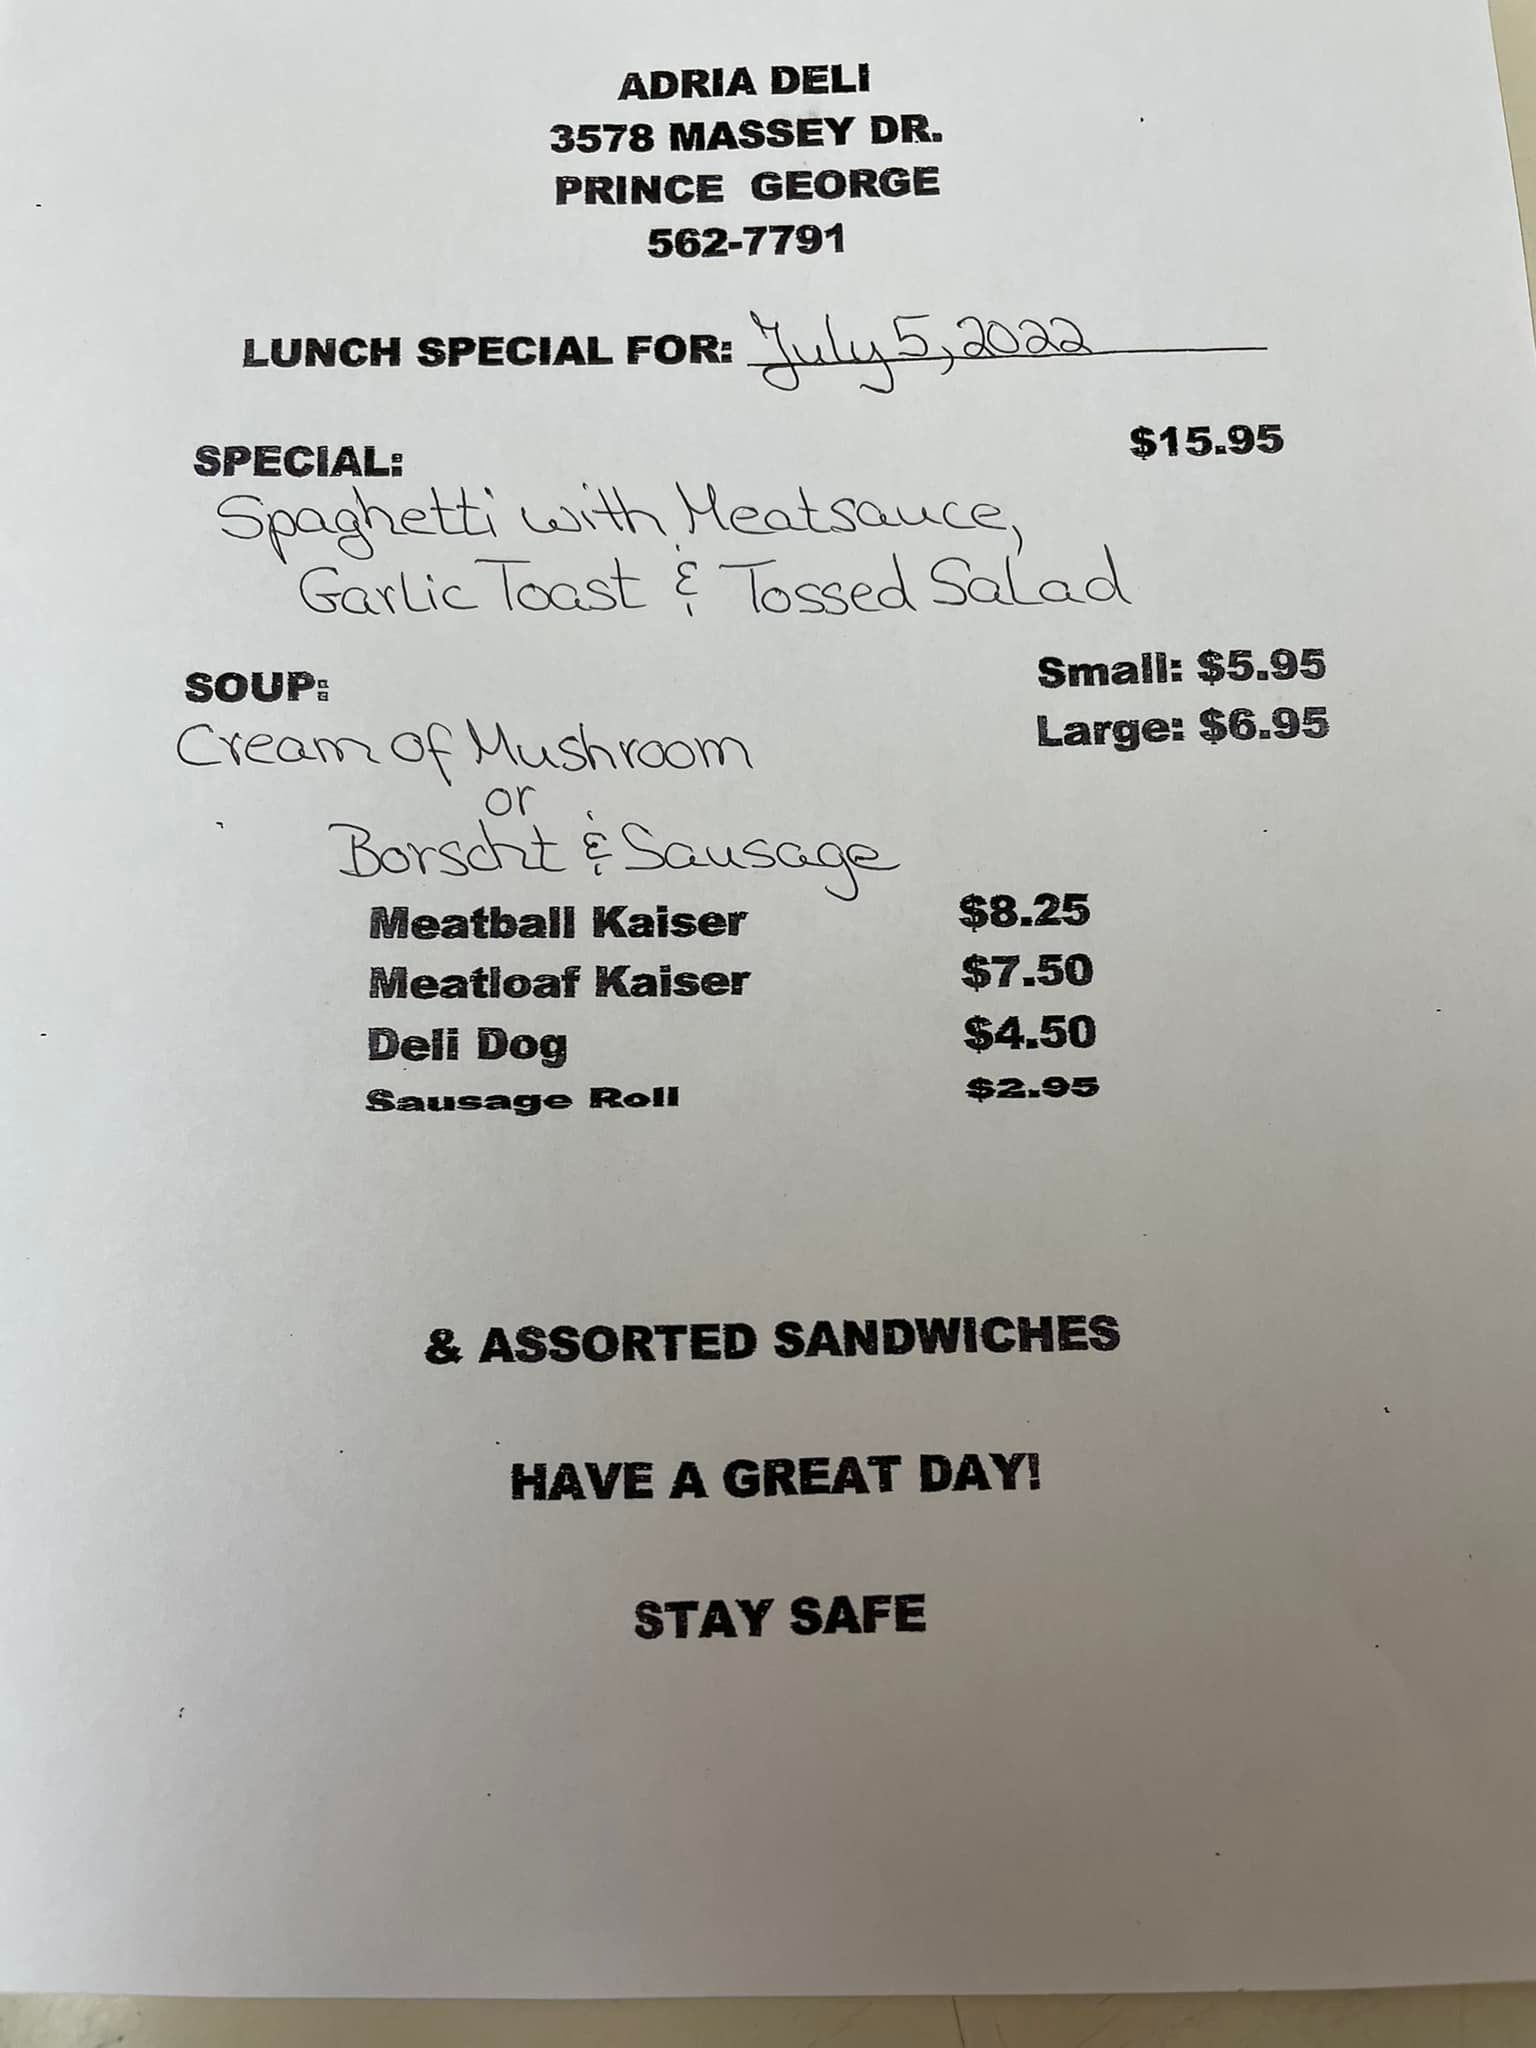 ADRIA DELI
3578 MASSEY DR.
PRINCE GEORGE
562-7791
LUNCH SPECIAL FOR: July 5, 2022
SPECIAL: $15.95
Spaghetti with Meatsauce,
Garlic Toast & Tossed Salad
SOUP: Small: $5.95
Cream of Mushroom Large: $6.95
or
Borscht & Sausage
Meatball Kaiser $8.25
Meatloaf Kaiser $7.50
Deli Dog $4.50
Sausage Roll $2.95
& ASSORTED SANDWICHES
HAVE A GREAT DAY!
STAY SAFE